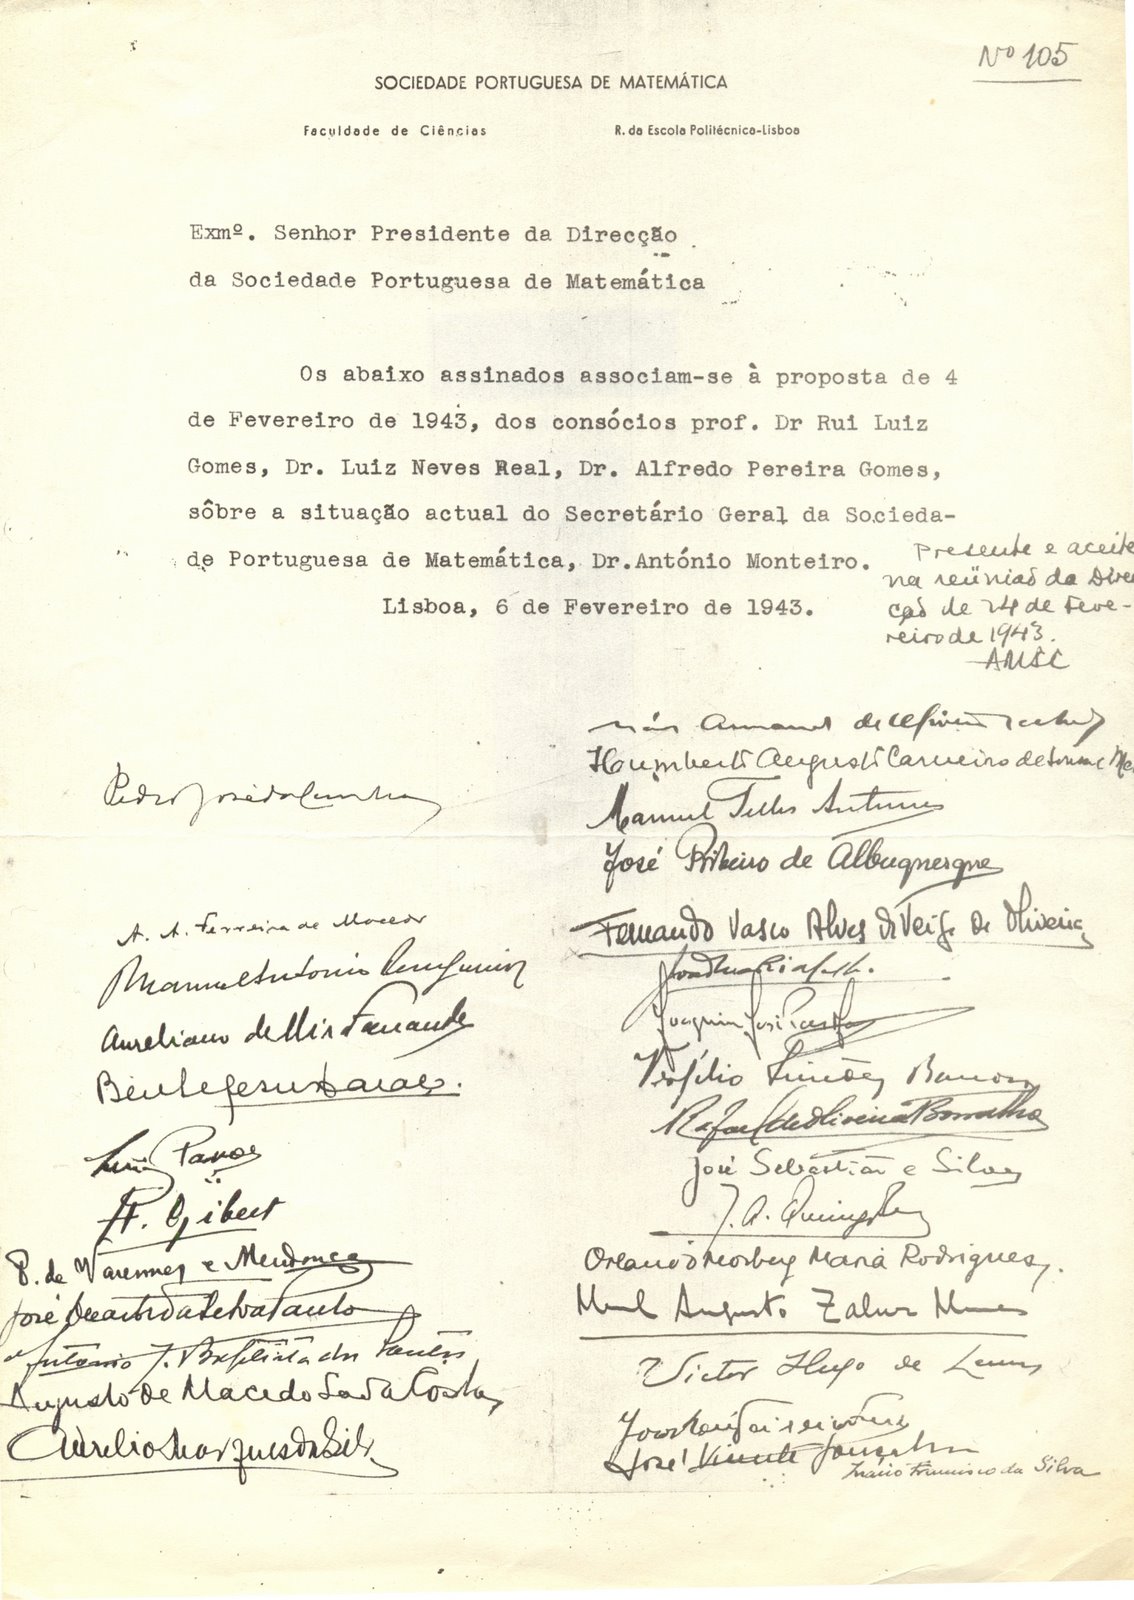 Nº 105
SOCIEDADE PORTUGUESA DE MATEMÁTICA
Faculdade de Ciências R. da Escola Politécnica-Lisboa
Exmº. Senhor Presidente da Direcção
da Sociedade Portuguesa de Matemática
Os abaixo assinados associam-se à proposta de 4
de Fevereiro de 1943, dos consócios prof. Dr Rui Luiz
Gomes, Dr. Luiz Neves Real, Dr. Alfredo Pereira Gomes,
sôbre a situação actual do Secretário Geral da Socieda-
de Portuguesa de Matemática, Dr.António Monteiro.
Lisboa, 6 de Fevereiro de 1943.
Presente e aceite
na reünião da Direc
ção de 24 de Feve-
reiro de 1943.
AMSC
Humberto Augusto Carneiro de
Manuel Telles Antunes
José Ribeiro de Albuquerque
Fernando Vasco Alves da Veiga de Oliveira
Joaquim José
Virgílio Simões Barros
Rafael de Oliveira
José Sebastião e Silva
J. A.
Orlando Morbey Maria Rodrigues
Augusto Zaluar Nunes
Victor Hugo de Lemos
José Vicente Gonçalves
Mário Francisco da Silva
Pedro José da Cunha
A. A. Ferreira de Macedo
Manuel António
Aureliano de Mira Fernandes
Bento de Jesus Caraça.
Luís Passos
A. Gibert
P. de Varennes e Mendonça
José
António J. Baptista dos Santos
Augusto de Macedo Sá da Costa
Aurélio Marques da Silva